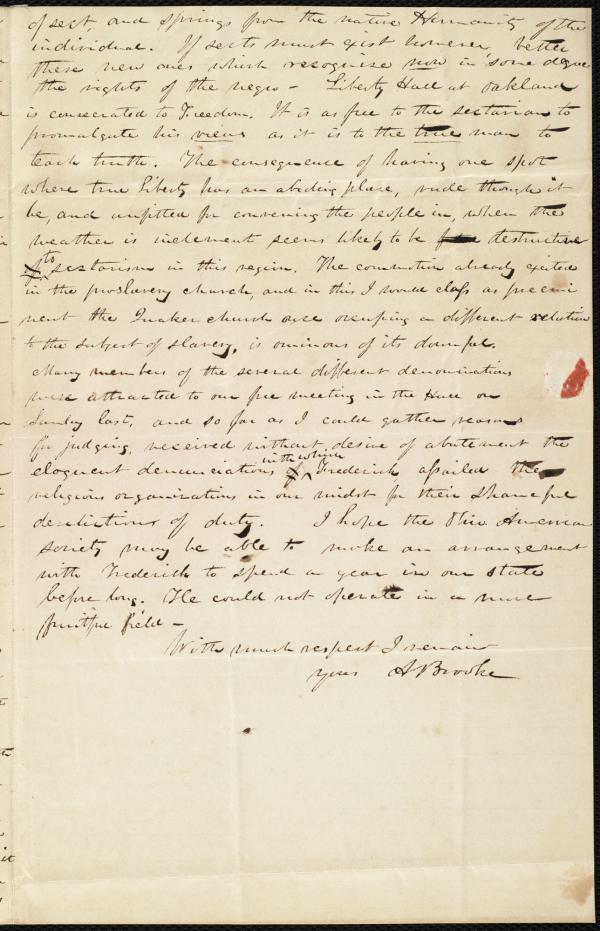 of sect, and springs from the native Humanity of the
individual. If sects must exist however, better
these new ones which recognise now in some degree
the rights of the negro – Liberty Hall at Oakland
is consecrated to Freedom. It is as free to the sectarian to
promulgate his views as it is to the true man to
teach truth. The consequence of having one spot
where true Liberty has an abiding place, rude though it
be, and unfitted for convening the people in, when the
weather is inclement seems likely to be destructive
to sectarism in this region. The commotion already excited
in the proslavery church, and in this I would class as preemi
nent the Quaker church as occupying a different relation
to the subject of slavery, is ominous of its downfal.
Many members of the several different denominations
were attracted to our free meeting in the Hall on
Sunday last, and so far as I could gather reasons
for judging, received without desire of abatement the
eloquent denunciations with which Frederick assailed the
religious organizations in our midst for their shameful
derelictions of duty. I hope the Ohio American
society may be able to make an arrangement
with Frederick to spend a year in our state
before long. He could not operate in a more
fruitful field –
With much respect I remain
yours A Brooke